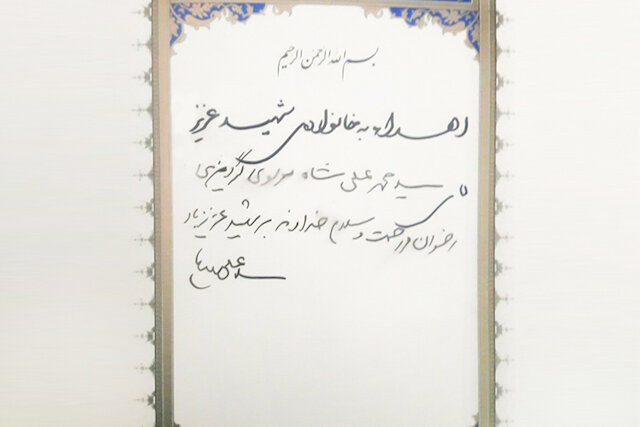 بسم الله الرحمن الرحیم
اهداء به خانواده‌ی شهید عزیز
سید محمد علی شاه موسوی گردیزی
رضوان و رحمت و سلام خداوند بر شهید عزیز باد
سید علی